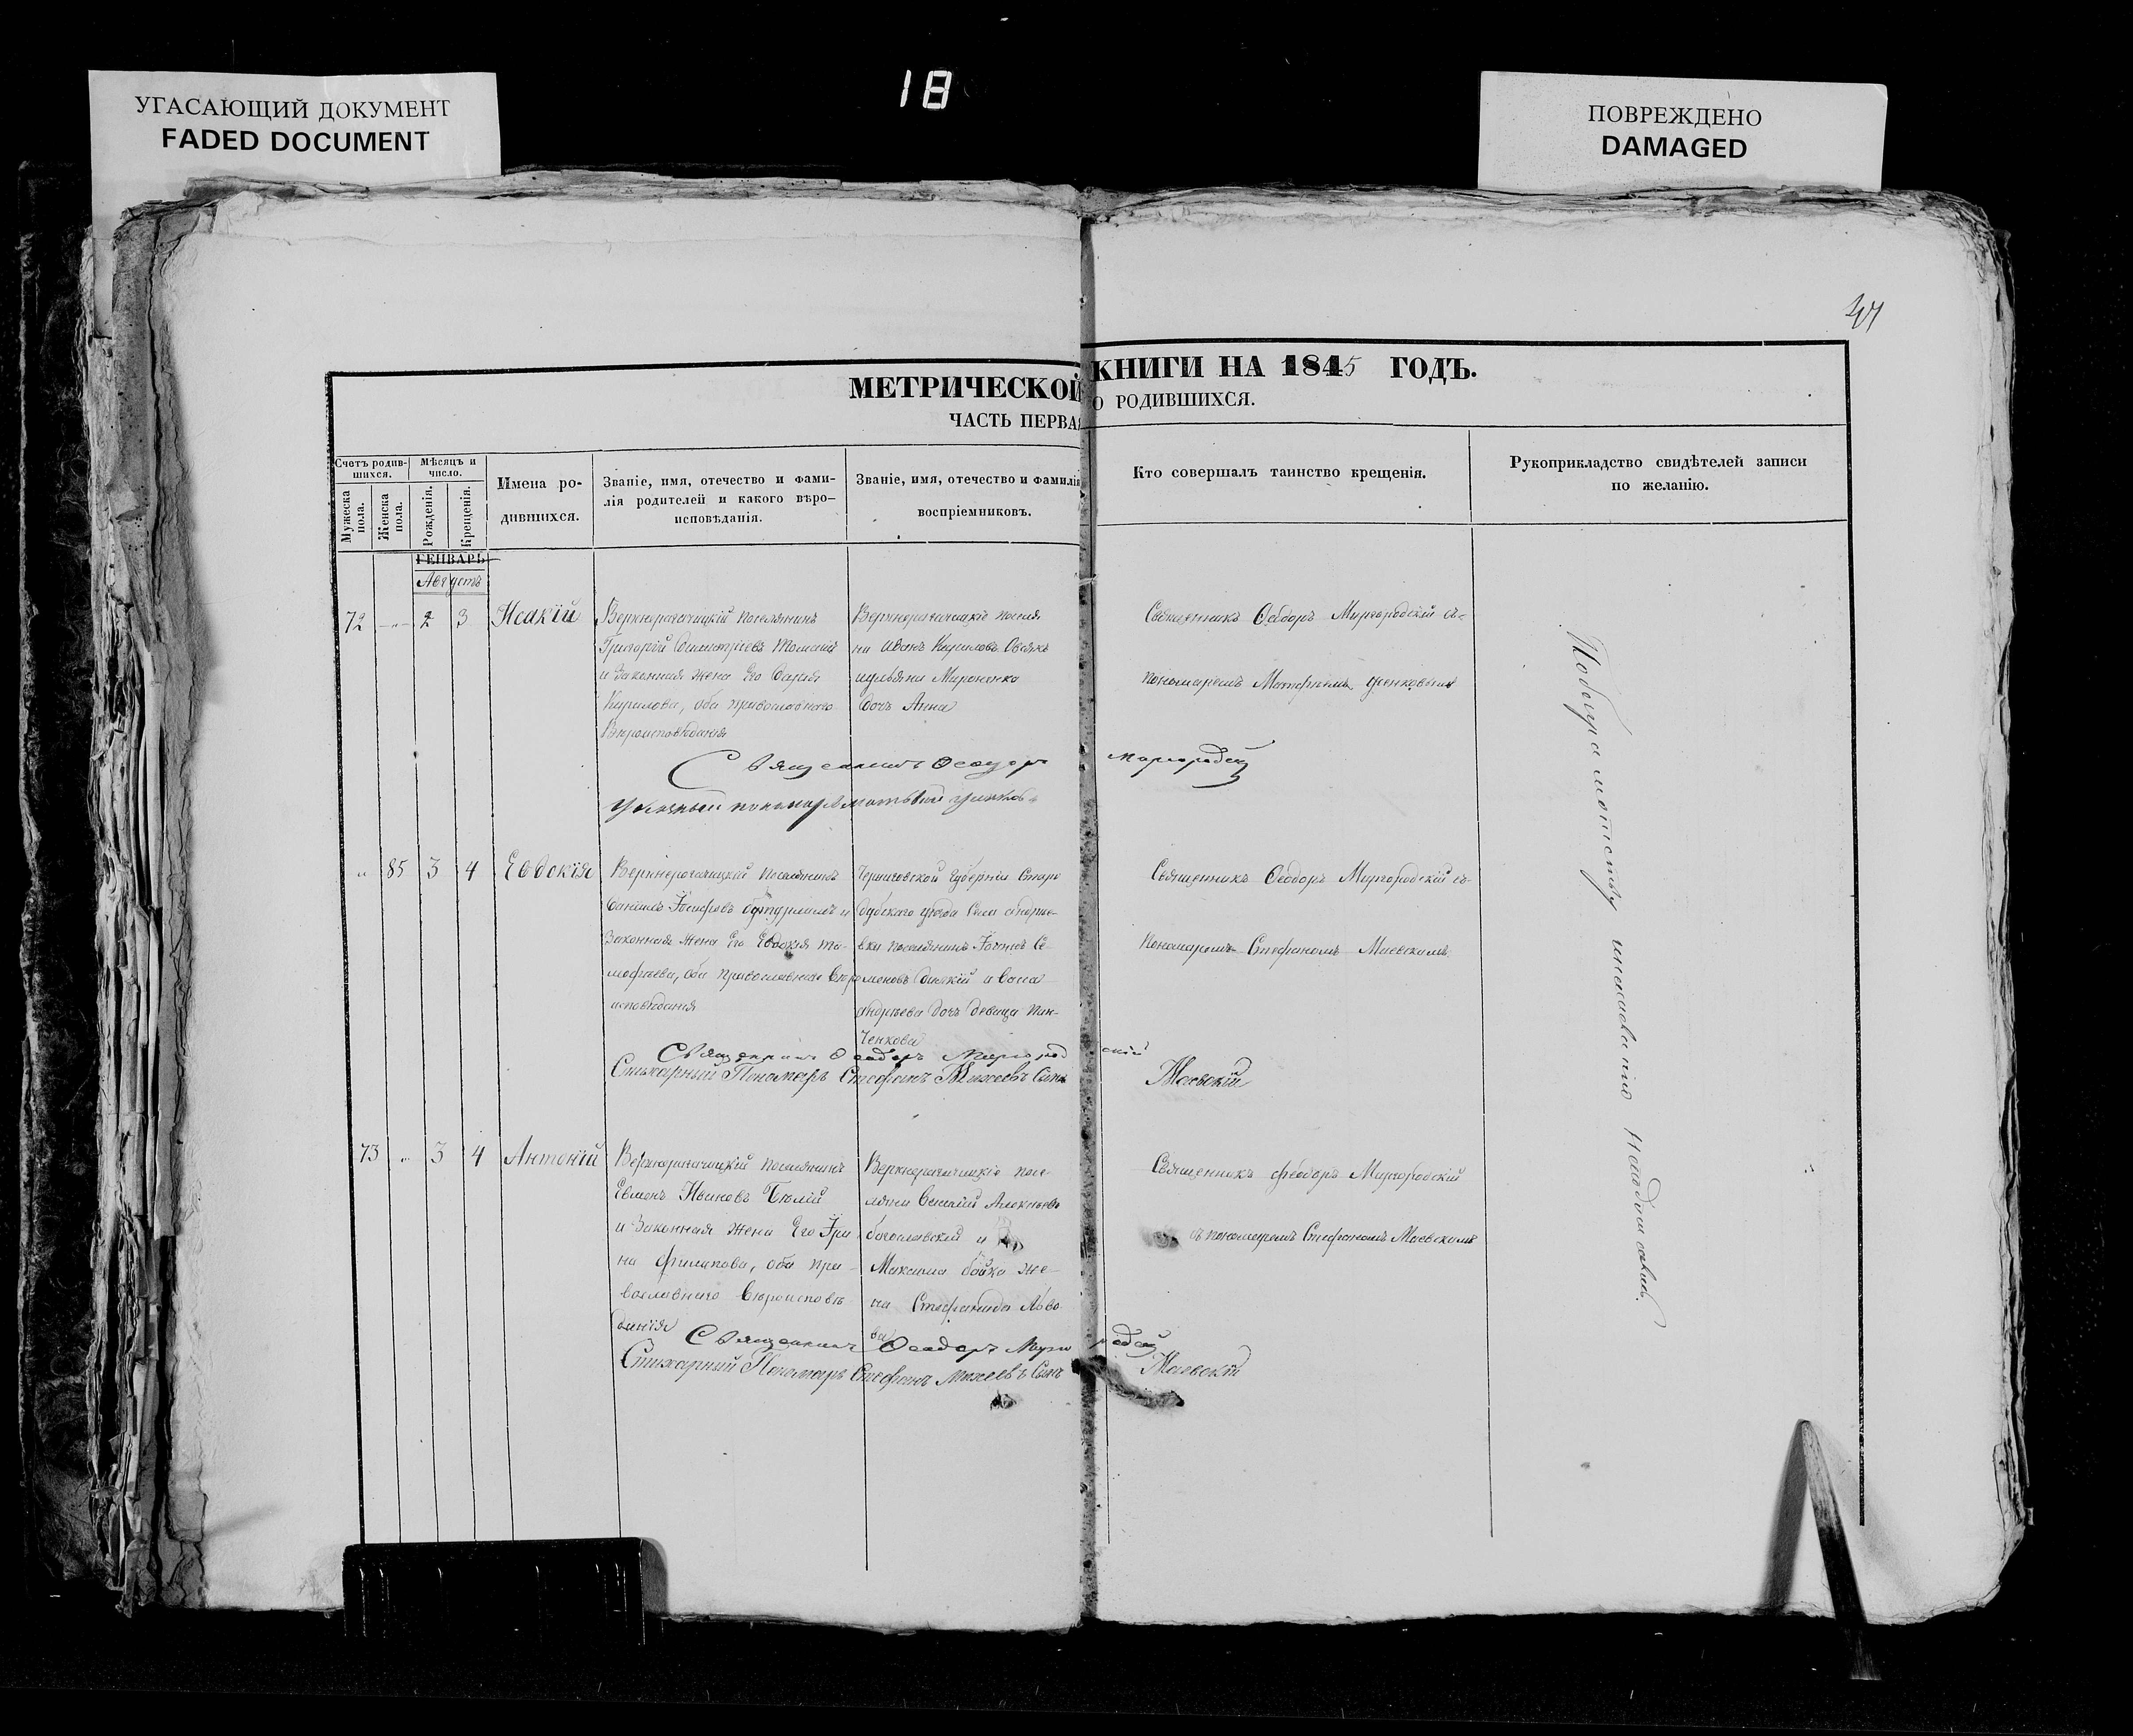 УГАСАЮЩИЙ ДОКУМЕНТ
FADED DOCUMENT
18
ПОВРЕЖДЕНО
DAMAGED
МЕТРИЧЕСКОЙ КНИГИ НА 1845 ГОДЪ.
ЧАСТЬ ПЕРВАЯ О РОДИВШИХСЯ.
Счетъ родив-
шихся.
Мужеска пола.
Женска пола.
Мѣсяцъ и
число.
Рожденія.
Крещенія.
Имена ро-
дившихся.
Званіе, имя, отечество и фами-
лія родителей и какого вѣро-
исповѣданія.
Званіе, имя, отечество и фамилія
воспріемниковъ.
Кто совершалъ таинство крещенія.
Рукоприкладство свидѣтелей записи
по желанію.
ГЕНВАРЬ
Августъ
72 2 3 Исакій
Верхнерогачицкій поселянинъ
Григорій Димитріевъ
и законная жена Его Дарія
Кирилова, оба православнаго
Вѣроисповѣданія
Верхнерогачицкіе поселя
не Иванъ Кириловъ
Мироненко
дочь Анна
Священникъ Ѳеодоръ Миргородскій съ
пономаремъ
Священникъ Ѳеодоръ Миргородскій
85 3 4 Евдокія
Верхнерогачицкій поселянинъ
Даніилъ Іосифовъ и
Законная жена Его Евдокія Ти-
мофѣева, оба православнаго Вѣро
исповѣданія
Черниговской Губерніи Старо
дубскаго уѣзда Села Андрѣе-
вки поселянинъ Іоаннъ Се-
меновъ
Андрѣева дочь девица Пан-
ченкова
Священникъ Ѳеодоръ Миргородскій съ
Пономаремъ Стефаномъ Маевскимъ
Священникъ Ѳеодоръ Миргородскій
Стихарный Пономарь Стефанъ Михеевъ Сынъ Маевскій
73 3 4 Антоній
Верхнерогачицкій поселянинъ
Евменъ Ивановъ Бѣлій
и Законная жена Его Ири
на Филипова, оба пра-
вославнаго Вѣроисповѣ
данія
Верхнерогачицкіе посе-
ляни Алексѣевъ
богославскій и
Максима бойка же-
на Стефанида Льво
ва
Священникъ Ѳеодоръ Миргородскій
съ пономаремъ Стефаномъ Маевскимъ
Священникъ Ѳеодоръ Миргородскій
Стихарный Пономарь Стефанъ Михеевъ Сынъ Маевскій